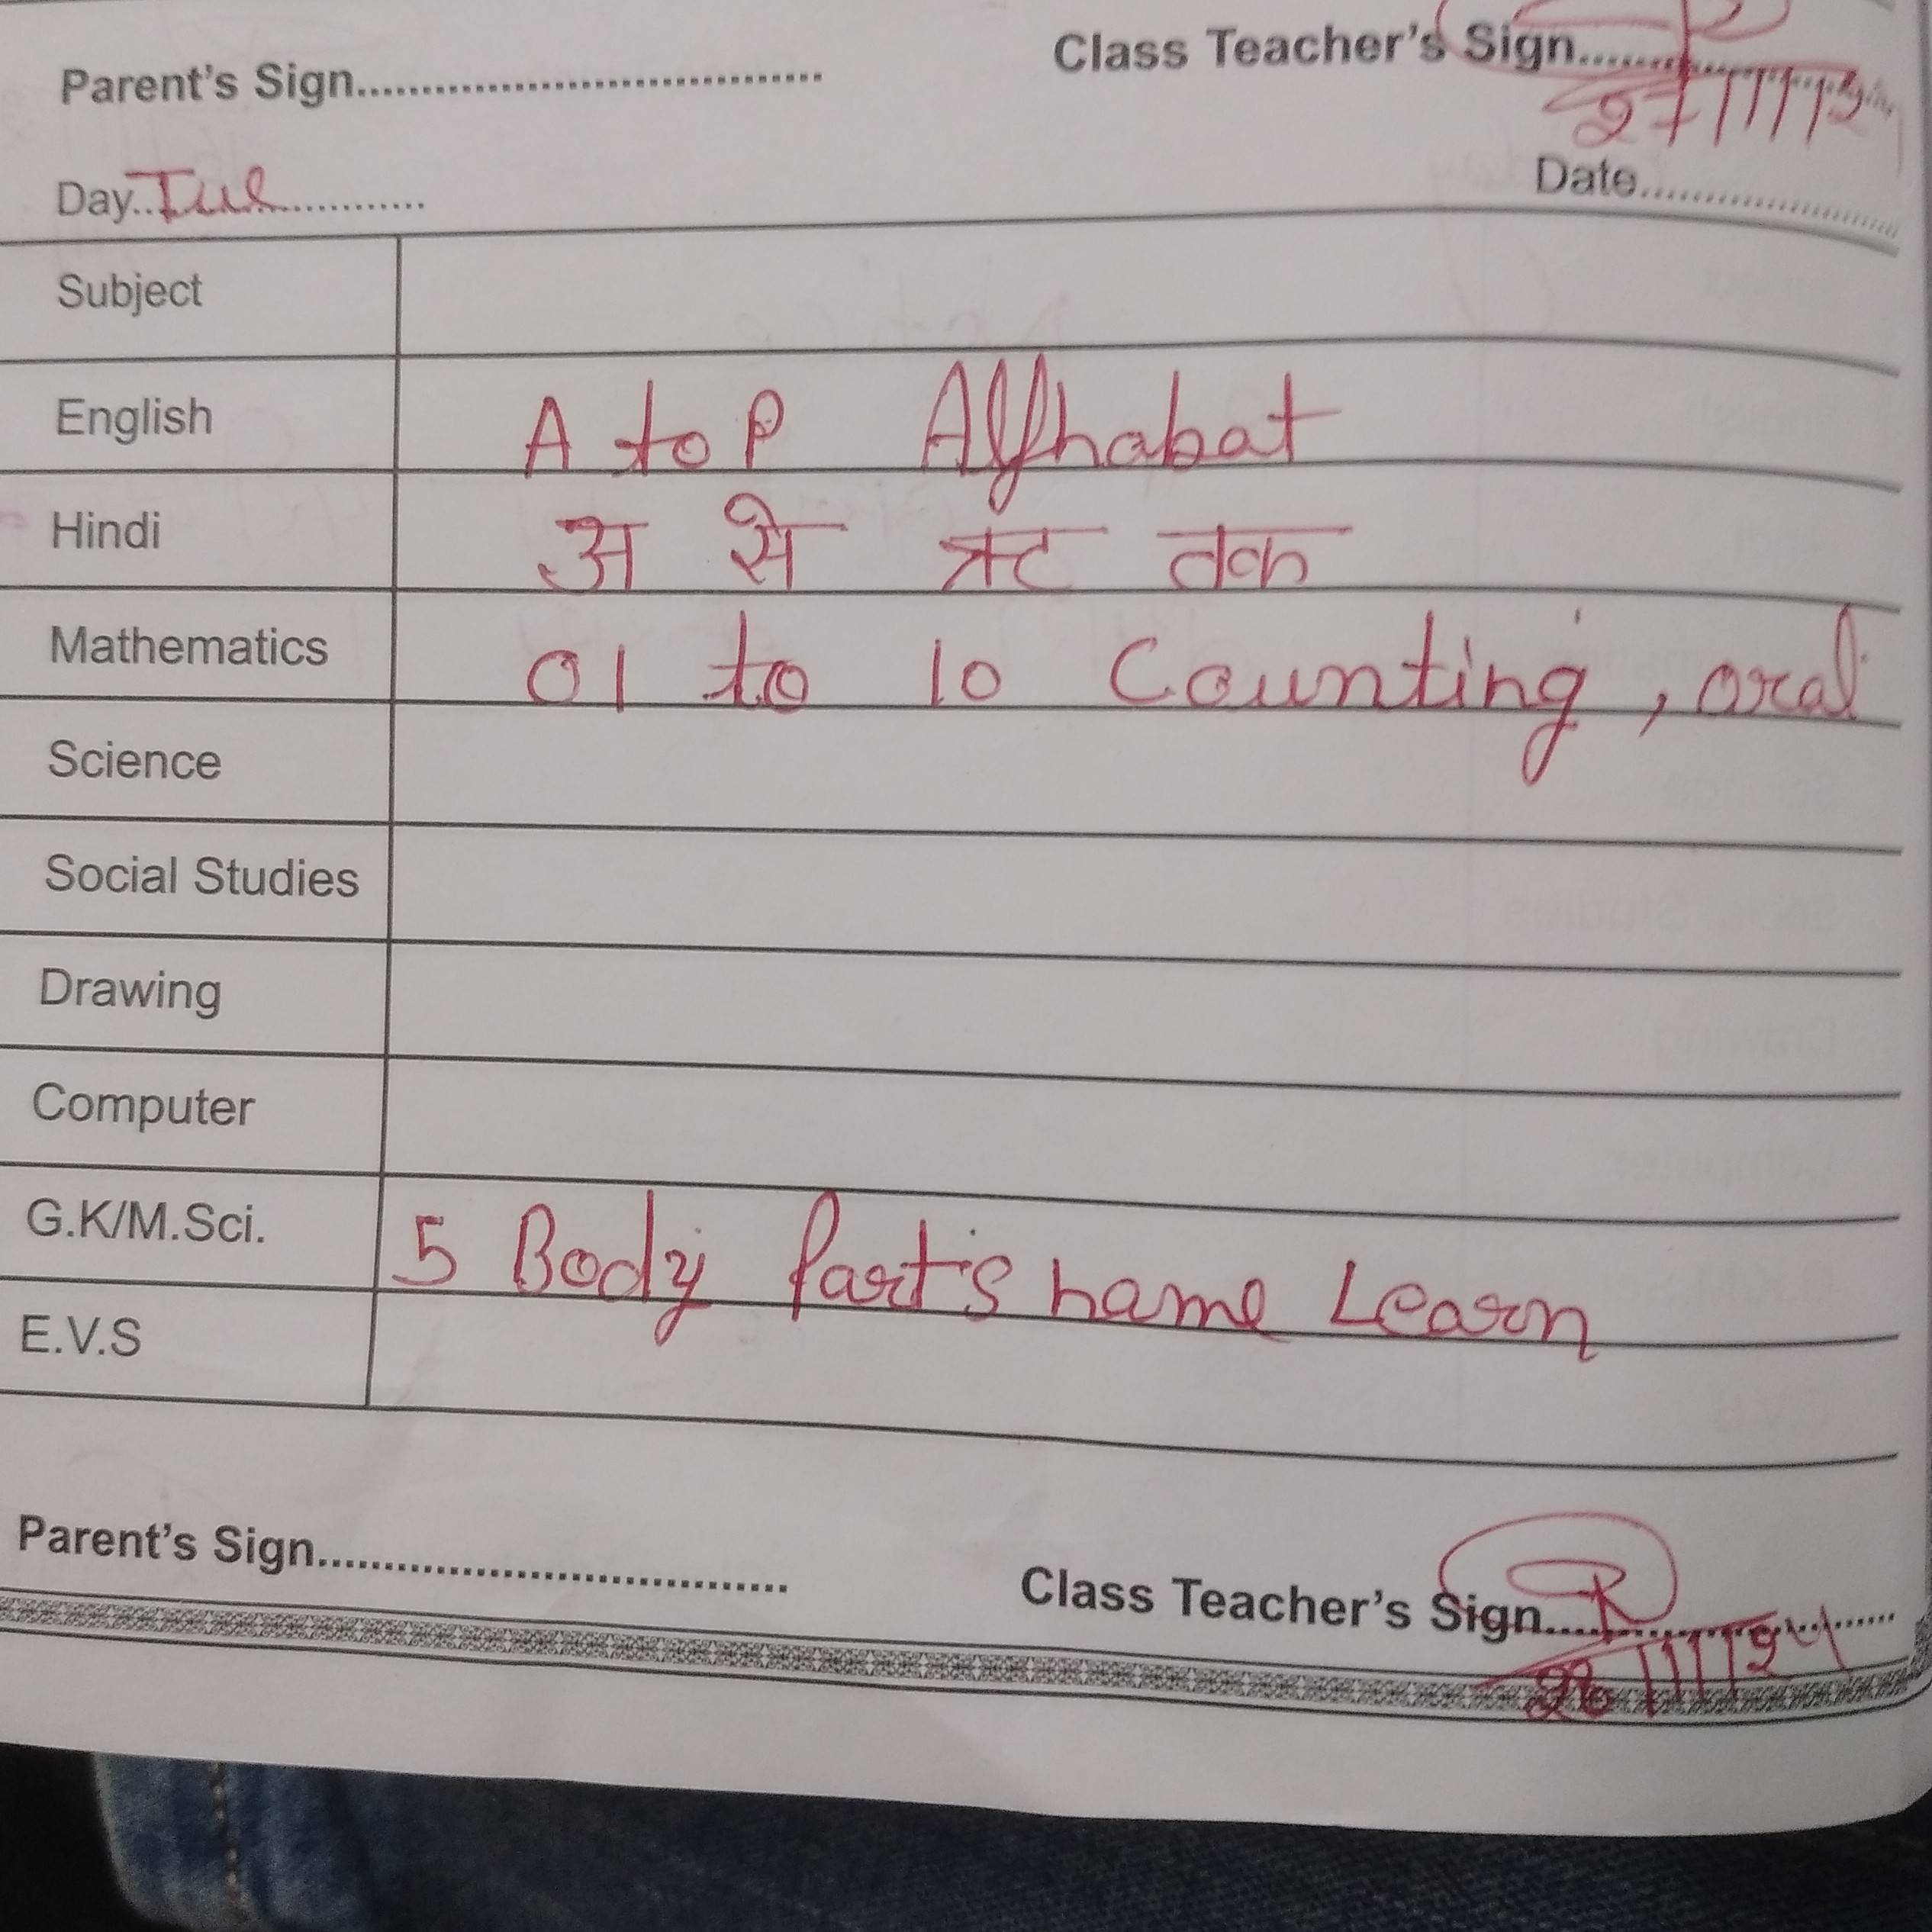 Parent's Sign.................................... Class Teacher's Sign........................
Day..Tue............... Date........................
Subject
English A to P Alphabat
Hindi अ से ऋ तक
Mathematics 01 to 10 Counting, oral
Science
Social Studies
Drawing
Computer
G.K/M.Sci. 5 Body Part's name Learn
E.V.S
Parent's Sign.................................... Class Teacher's Sign........................